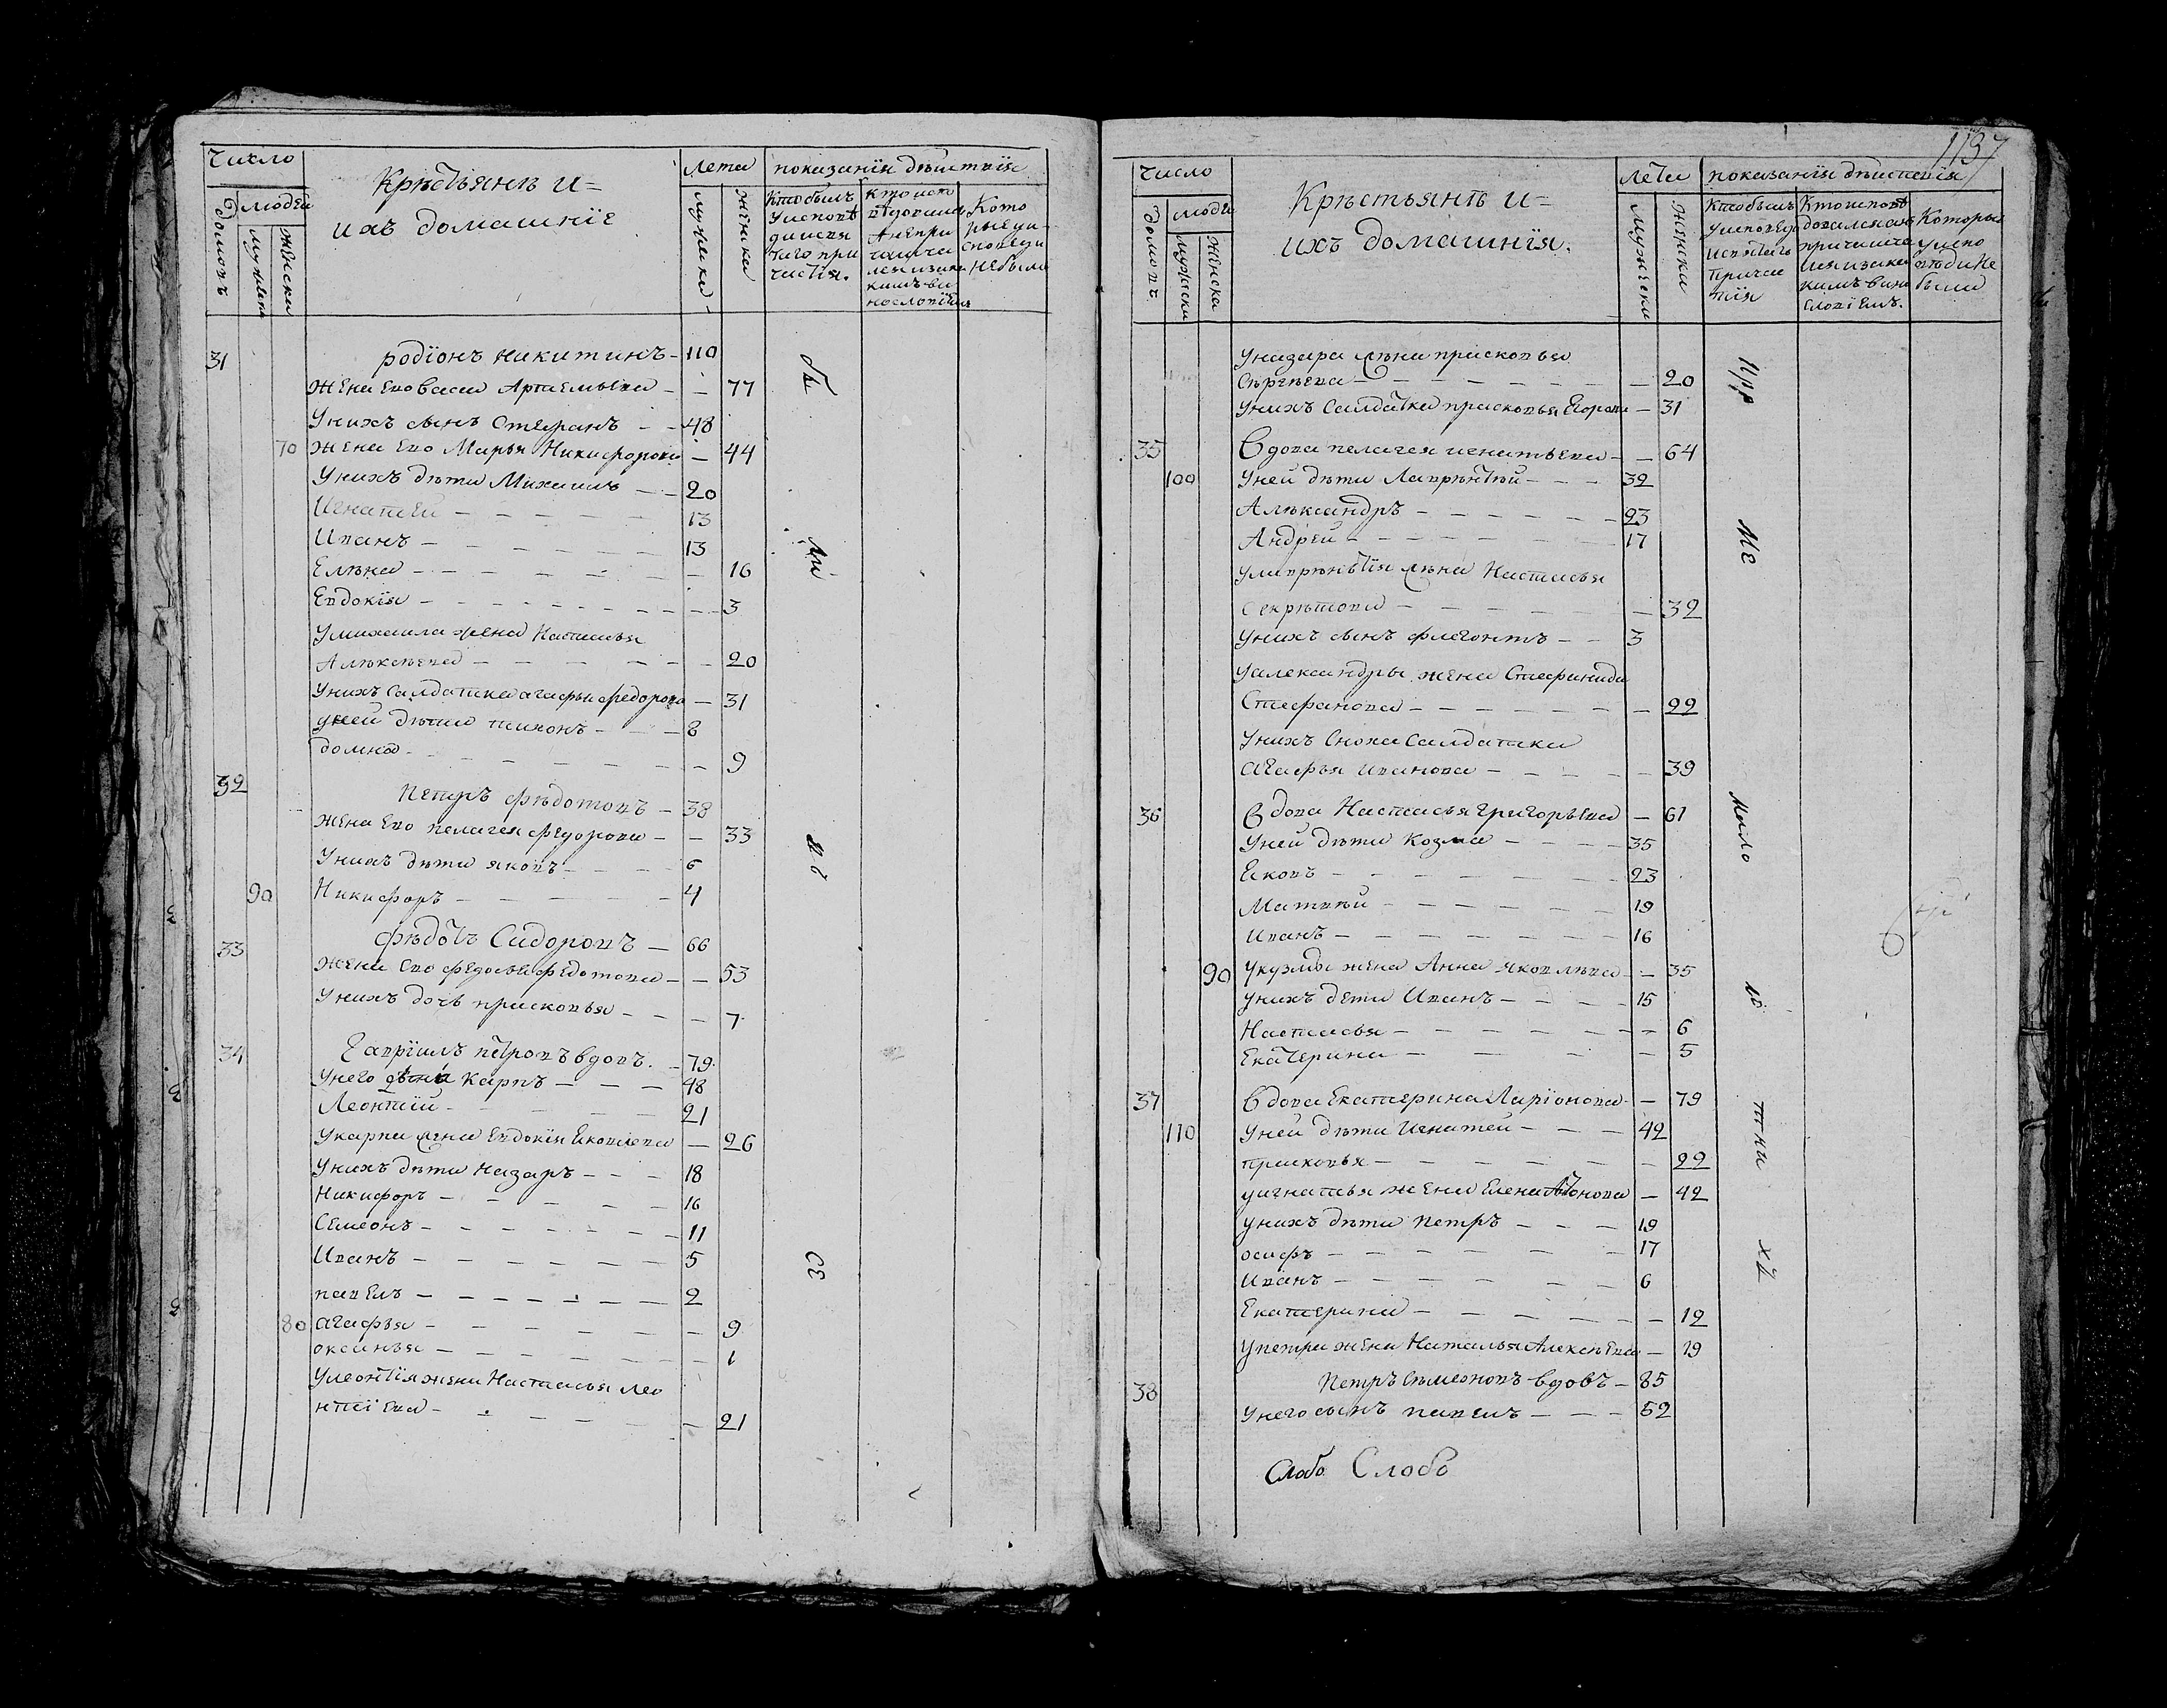 число
Крѣстьянѣ и=
ихъ домашнiе
лета
показанiя дѣиствия
домовъ
людеи
мужеска
женска
мужеска
женска
Кто былъ
уисповѣ
ди исвя
таго при
частiя.
кто исп
ведовалс
а непри
части
лся иза ка
кимъ ви
нословiем
Кото
рые уи
споведи
небыли
31 родiонъ никитинъ - 110
жена ево Васса Артемьева - - 77
Унихъ сынъ Стефанъ - - 48
70 жена ево Марья Никифорова - 44
Унихъ дѣти Михаилъ - - 20
Игнатеи - 13
Иванъ - 13
Елѣна - 16
Евдокiя - 3
Умихаила жена Настасья
Алѣксѣева - 20
Унихъ салдатка агафья федорова - 31
уней дѣти тихонъ - 8
домна - 9
32 Петръ фѣдотовъ - 38
жена ево пелагея федорова - - 33
Унихъ дѣти яковъ - 6
90 Никифоръ - 4
33 фѣдотъ Сидоровъ - 66
жена ево федосья федотова - - 53
Унихъ дочь прасковья - 7
34 Гаврiилъ петровъ вдовъ. - 79
Унего дѣти Карпъ - 48
Леонтiй - 21
Укарпа жена Евдокiя Яковлева - 26
Унихъ дѣти назаръ - 18
Никифоръ - 16
Семеонъ - 11
Иванъ - 5
павелъ - 2
80 агафья - 9
оксинья - 1
Улеонтiя жена Настасья лео
нтiева - 21
1137
число
Крѣстьянѣ и=
ихъ домашнiя.
лета
показанiя дѣиствiя
домовъ
людеи
мужеска
женска
мужеска
женска
Кто былъ
уисповеди
исвятаго
причас
тiя
Кто исповѣ
довался анѣ
причаща
лся иза ка
кимъ вино
словiемъ.
Которые
уиспо
вѣди не
были
Уназара жѣна прасковья
Сѣргѣева - 20
Унихъ Салдатка прасковья Егорова - 31
35 Вдова пелагея игнатьева - - 64
100 Уней дѣти Лаврѣнтiй - 32
Алѣксандръ - 23
Андрей - 17
Улаврѣнтiя жѣна Настасья
Секрѣтова - 32
Унихъ сынъ флегонтъ - - 3
Уалександры жена Стефанида
Стефанова - 22
Унихъ Сноха Салдатка
агафья иванова - 39
36 Вдова Настасья григорьева - 61
Уней дѣти Козма - 35
Яковъ - 23
Матвѣй - 19
Иванъ - 16
90 Укузмы жена Анна яковлѣва - - 35
унихъ дети Иванъ - 15
Настасья - 6
Екатерина - 5
37 Вдова Екатерина Ларiонова - - 79
110 Уней дѣти Игнатей - 42
прасковья - 22
уигнатья жена Елена Антонова - 42
унихъ дѣти петръ - 19
осифъ - 17
Иванъ - 6
Екатерина - 12
Упетра жена Наталья Алексѣева - 19
38 Петръ Сѣмеоновъ вдовъ - 85
Унего сынъ павелъ - 52
Слобо Слобо